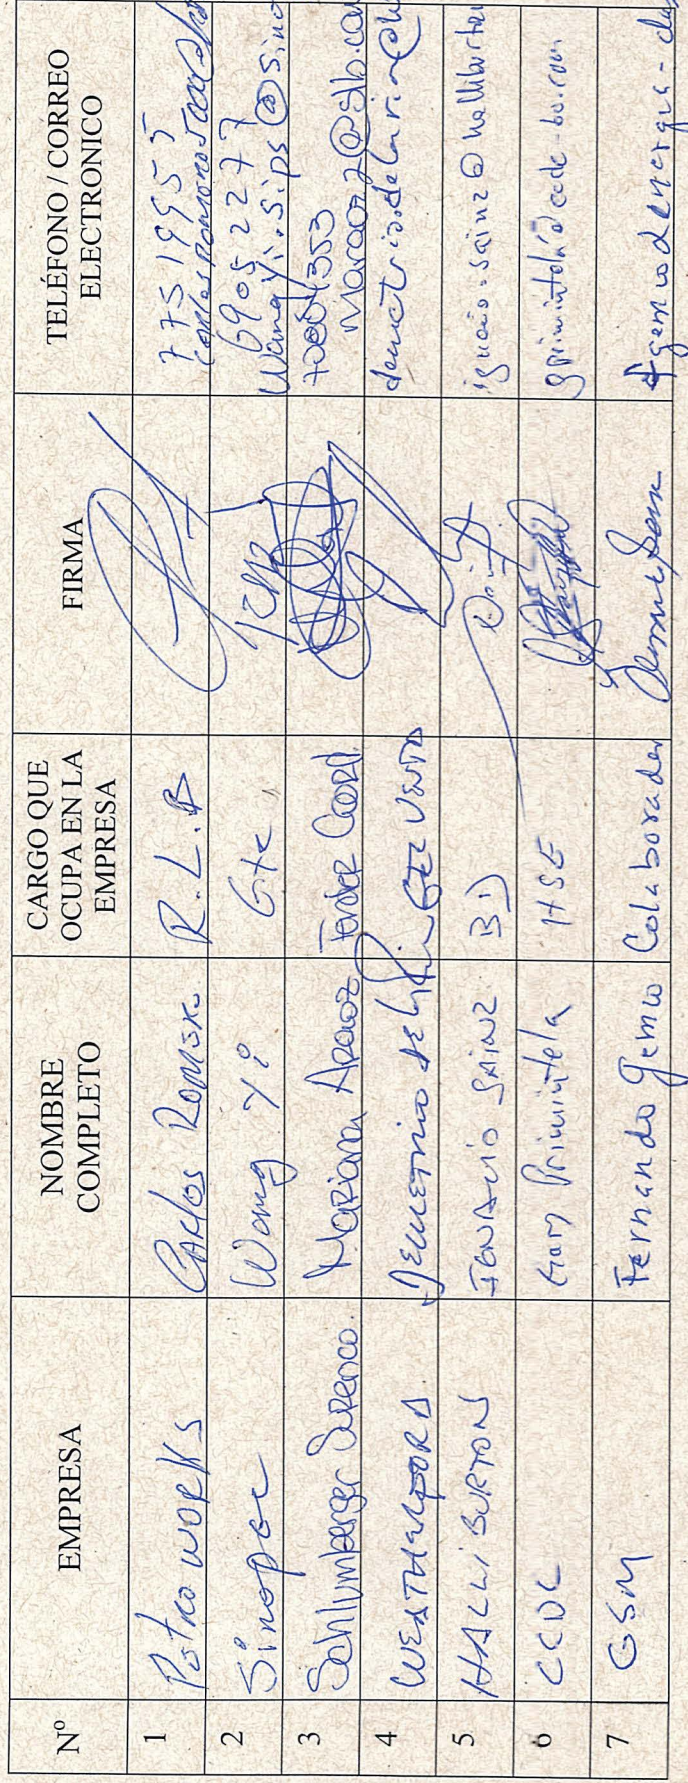 Nº EMPRESA NOMBRE COMPLETO CARGO QUE OCUPA EN LA EMPRESA FIRMA TELÉFONO / CORREO ELECTRONICO
1 Petroworks Carlos Romero R.L.B 77519955
2 Sinopec Wang Yi Gte. 69052277 Wangyi.sips@sino
3 Schlumberger Surenco. Mariana Araoz Tender Coord. Maraoz2@slb.com
4 WEATHERFORD Demetrio de la Gte Venta demetrio.delarin@
5 HALLIBURTON IGNACIO SAINZ BD ignacio.sainz@halliburton
6 CCDC Gary Primintela HSE gprimintela@ccdc-bo.com
7 GSM Fernando Gemio Colaborador fgemio@energia-